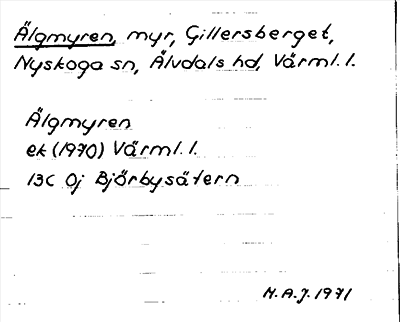 Älgmyren, myr, Gillersberget,
Nyskoga sn, Älvdals hd, Värml. l.
Älgmyren
ek (1970) Värml. l.
13C 0j Björbysätern
M.A.J. 1971